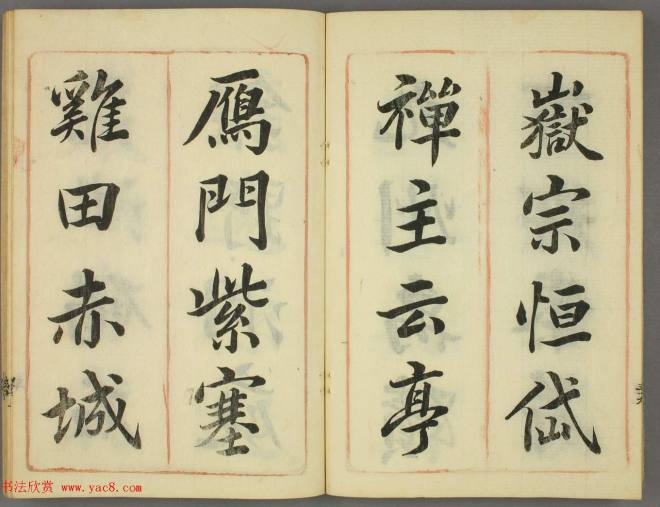 嶽宗恒岱
禪主云亭
鴈門紫塞
雞田赤城
书法欣赏 www.yac8.com